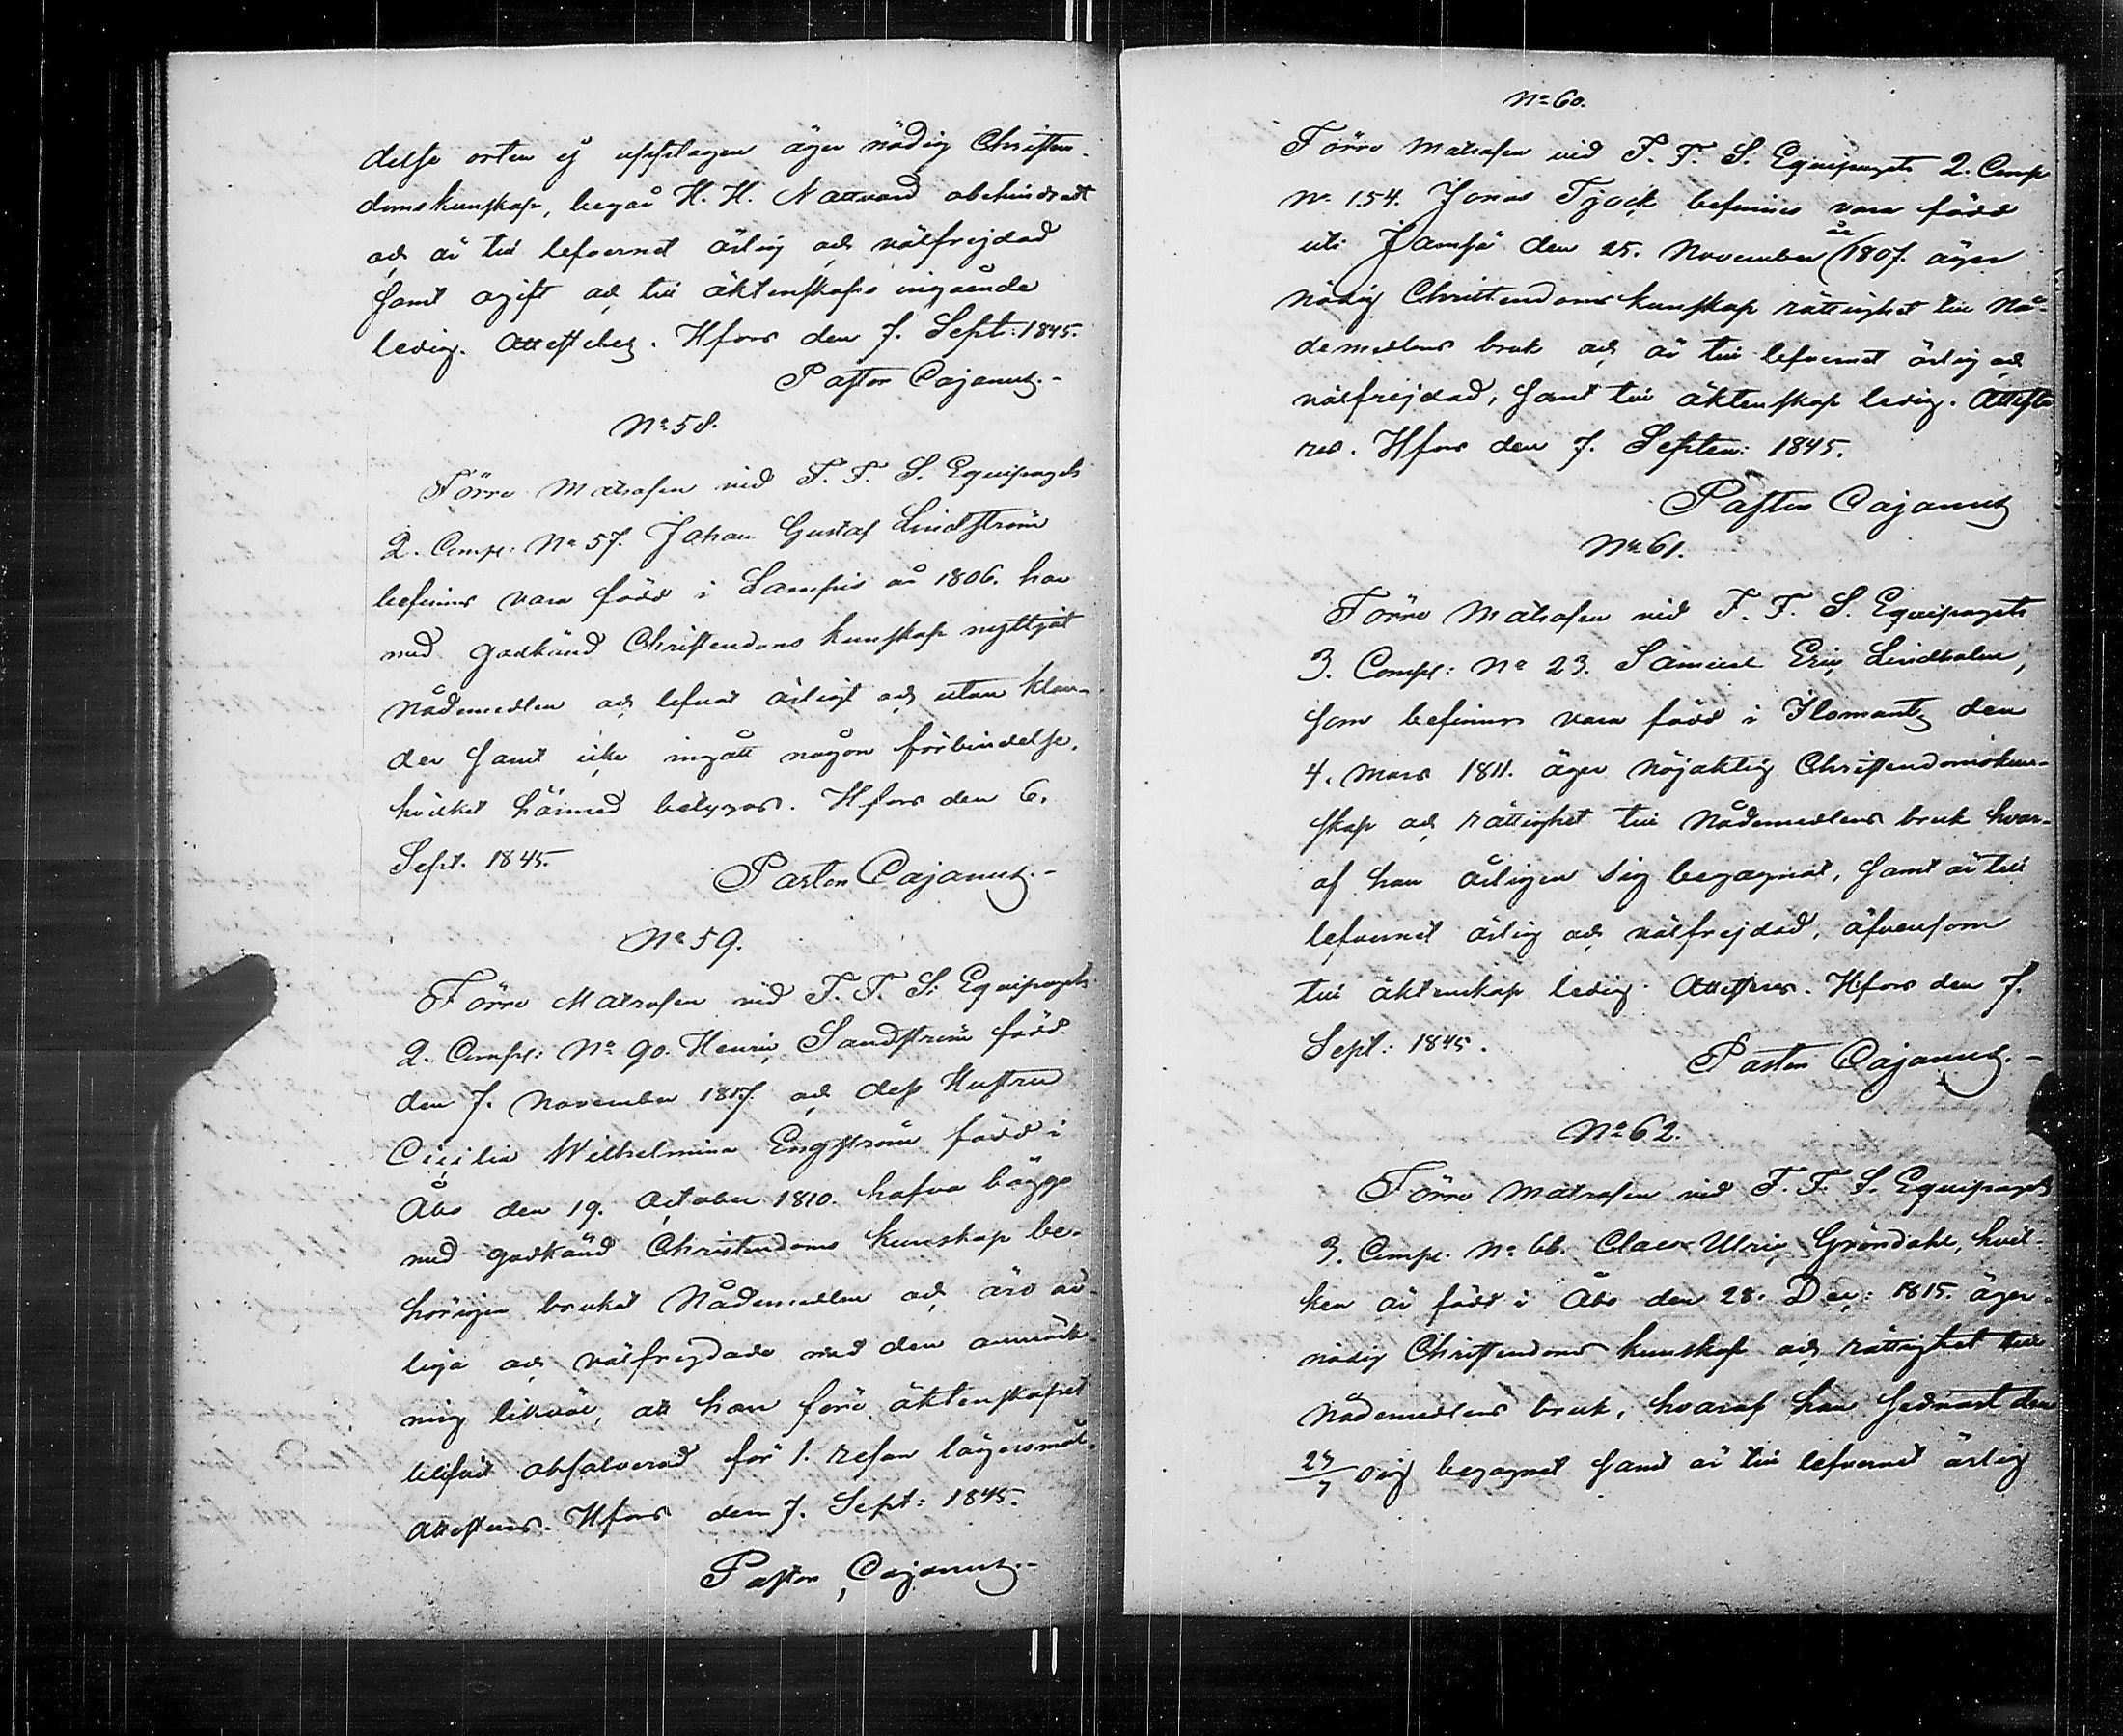 delse orten ej upptagen äger nödig Christen-
domskunskap, begår H. H. Nattvard obehindradt
och är till lefvernet ärlig och välfrejdad
samt ogift och till äktenskaps ingående
ledig. Attesteras. Hfors den 7. Sept: 1845.
Pastor Cajanus.-
No 58.
Förre Matrosen vid F. F. S. Equipagets
2. Comp: No 57. Johan Gustaf Lindström
befinnes vara född i Lampis år 1806. har
med godkänd Christendoms kunskap nyttjat
Nådemedlen och lefvat ärligt och utan klan-
der samt icke ingått någon förbindelse,
hvilket härmed betygas. Hfors den 6.
Sept. 1845.
Pastor Cajanus.-
No 59.
Förre Matrosen vid F. F. S. Equipagets
2. Comp: No 90. Henric Sandström född
den 7. November 1817. och dess Hustru
Cecilia Wilhelmina Engström född i
Åbo den 19. October 1810. hafva bägge
med godkänd Christendoms kunskap be-
hörigen brukat Nådemedlen och äro är-
liga och välfrejdade med den anmärk-
ning likväl, att han före äktenskapet
blifvit absolverad för 1. resan lägersmål.
Attesteras. Hfors den 7. Sept: 1845.
Pastor Cajanus.-
No 60.
Förre Matrosen vid F. F. S. Equipagets 2. Comp
No 154. Jonas Tjock befinnes vara född
uti Jamsä den 25. November år 1807. äger
nödig Christendoms kunskap rättighet till Nå-
demedlens bruk och är till lefvernet ärlig och
välfrejdad, samt till äktenskap ledig. Atteste
ras. Hfors den 7. Septem: 1845.
Pastor Cajanus
No 61.
Förre Matrosen vid F. F. S. Equipagets
3. Comp: No 23. Samuel Eric Lindholm,
som befinnes vara född i Ilomants den
4. Mars 1811. äger nöjaktig Christendomskun-
skap och rättighet till Nådemedlens bruk hvar-
af han årligen sig begagnat, samt är till
lefvernet ärlig och välfrejdad, äfvensom
till äktenskap ledig. Attesteras. Hfors den 7.
Sept: 1845.
Pastor Cajanus.-
No 62.
Förre Matrosen vid F. F. S. Equipagets
3. Comp: No 66. Claes Ulric Gröndahl, hvil-
ken är född i Åbo den 28. Dec: 1815. äger
nödig Christendoms kunskap och rättighet till
Nådemedlens bruk, hvaraf han sednast den
25/7 sig begagnat samt är till lefvernet ärlig